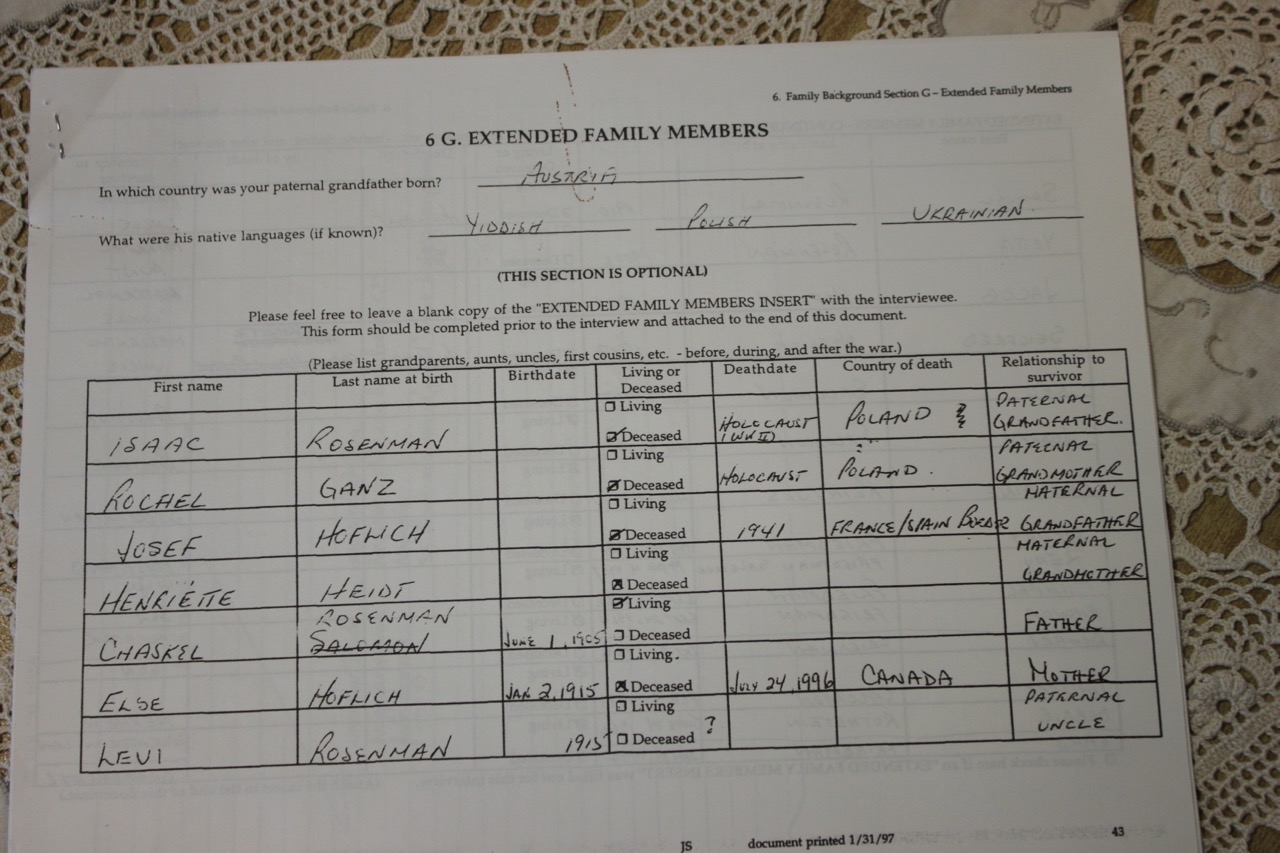 6. Family Background Section G – Extended Family Members
6 G. EXTENDED FAMILY MEMBERS
In which country was your paternal grandfather born? AUSTRIA
What were his native languages (if known)? YIDDISH POLISH UKRAINIAN
(THIS SECTION IS OPTIONAL)
Please feel free to leave a blank copy of the "EXTENDED FAMILY MEMBERS INSERT" with the interviewee.
This form should be completed prior to the interview and attached to the end of this document.
(Please list grandparents, aunts, uncles, first cousins, etc. - before, during, and after the war.)
First name Last name at birth Birthdate Living or Deceased Deathdate Country of death Relationship to survivor
ISAAC ROSENMAN ☐ Living ☑ Deceased HOLOCAUST (WW II) POLAND PATERNAL GRANDFATHER.
ROCHEL GANZ ☐ Living ☑ Deceased HOLOCAUST POLAND. PATERNAL GRANDMOTHER
JOSEF HOFLICH ☐ Living ☑ Deceased 1941 FRANCE/SPAIN BORDER MATERNAL GRANDFATHER
HENRIËTTE HEIDT ☐ Living ☑ Deceased MATERNAL GRANDMOTHER
CHASKEL ROSENMAN SALOMON JUNE 1, 1905 ☑ Living ☐ Deceased FATHER
ELSE HOFLICH JAN 2, 1915 ☐ Living. ☑ Deceased JULY 24, 1996 CANADA MOTHER
LEVI ROSENMAN 1915 ☐ Living ☐ Deceased ? PATERNAL UNCLE
JS document printed 1/31/97 43